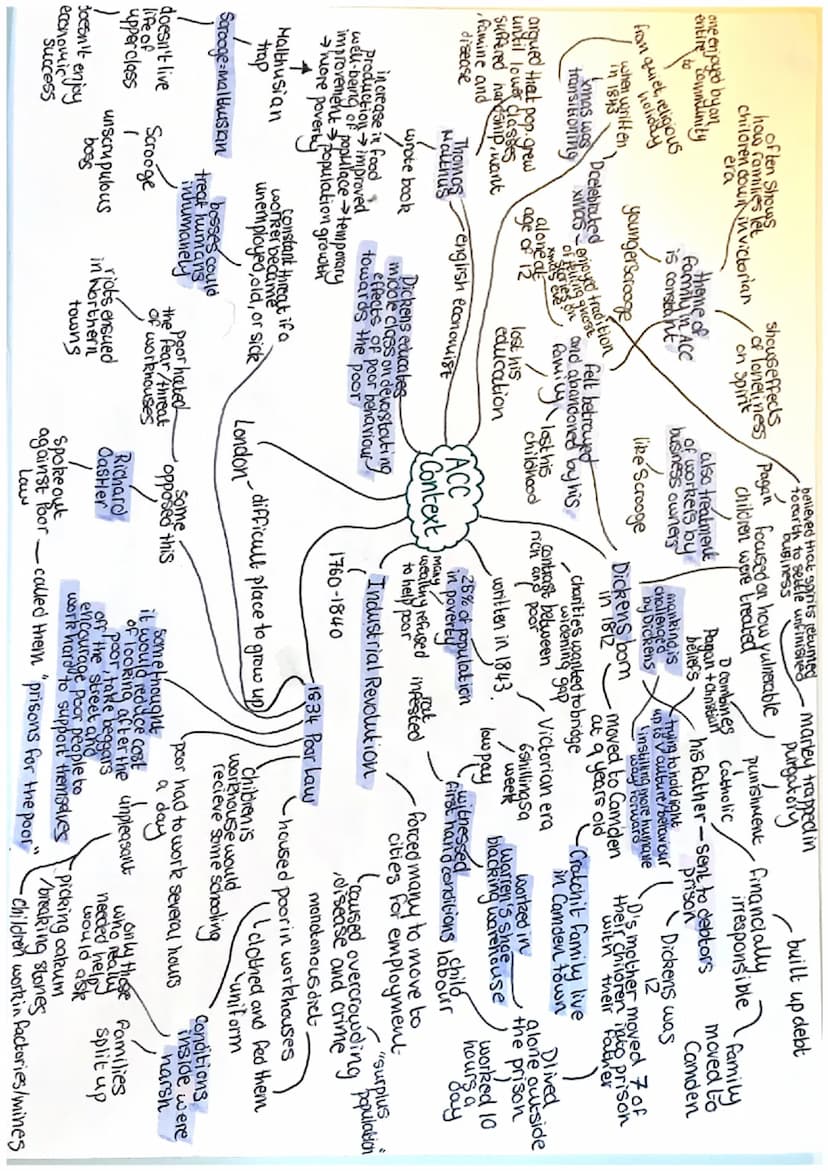 ACC
Context
Thomas
Malthus
english economist
wrote book
argued that pop. grew
until lower classes
suffered hardship, want
, famine and
disease
Malthusian
trap
increase in food
production → improved
well-being of populace → temporary
improvement → population growth
→ more poverty
Scrooge=malthusian
doesn't live
life of
upperclass
doesn't enjoy
economic
success
Xmas was
transitioning
when written
in 1843
from quiet, religious
holiday
to
one enjoyed by an
entire community
D celebrated
xmas - enjoyed tradition
of telling ghost
stories on
xmas eve
believed that spirits returned
to earth to settle unfinished
business
marley trapped in
purgatory
theme of
family in ACC
is constant
often shows
how families let
children down in victorian
era
shows effects
of loneliness
on spirit
younger scrooge
alone at
age of 12
felt betrayed
and abandoned by his
family
lost his
education
lost his
childhood
Dickens born
in 1812
also treatment
of workers by
business owners
like Scrooge
focused on how vulnerable
children were treated
mankind is
challenged
by Dickens
Pagan
D combines
Pagan + christian
beliefs
Catholic
punishment
trying to hold light
up to V culture/behaviour
insinuating more humane
way forward
his father - sent to debtors
prison
financially
irresponsible
built up debt
family
moved to
Camden
Dickens was
12
D's mother moved 7 of
their children into prison
with their father
D lived
alone outside
the prison
moved to Camden
at 9 years old
Cratchit family live
in Camden town
worked in
Warren's shoe
blacking warehouse
child
labour
worked 10
hours a
day
6 shillings a
week
low pay
witnessed
first hand conditions
rat
infested
written in 1843
Victorian era
charities wanted to bridge
widening gap
contrast between
rich and poor
25% of population
in poverty
many
wealthy refused
to help poor
Industrial Revolution
1760-1840
forced many to move to
cities for employment
caused overcrowding
, disease and crime
"surplus
population"
Dickens educates
middle class on devastating
effects of poor behaviour
towards the poor
London - difficult place to grow up
1834 Poor Law
constant threat if a
worker became
unemployed, old, or sick
bosses could
treat humans
inhumanely
Scrooge
unscrupulous
boss
some
opposed this
poor hated
the fear/threat
of workhouses
riots ensued
in Northern
towns
Richard
Oastler
spoke out
against Poor
Law
called them "prisons for the poor"
some thought
it would reduce cost
of looking after the
poor, take beggars
off the street and
encourage poor people to
work hard to support themselves
poor had to work several hours
a day
unpleasant
picking oakum
/breaking stones
children work in factories/mines
children in
workhouse would
recieve some schooling
housed poor in workhouses
monotonous diet
clothed and fed them
uniform
conditions
inside were
harsh
only those
who really
needed help
would ask
families
split up